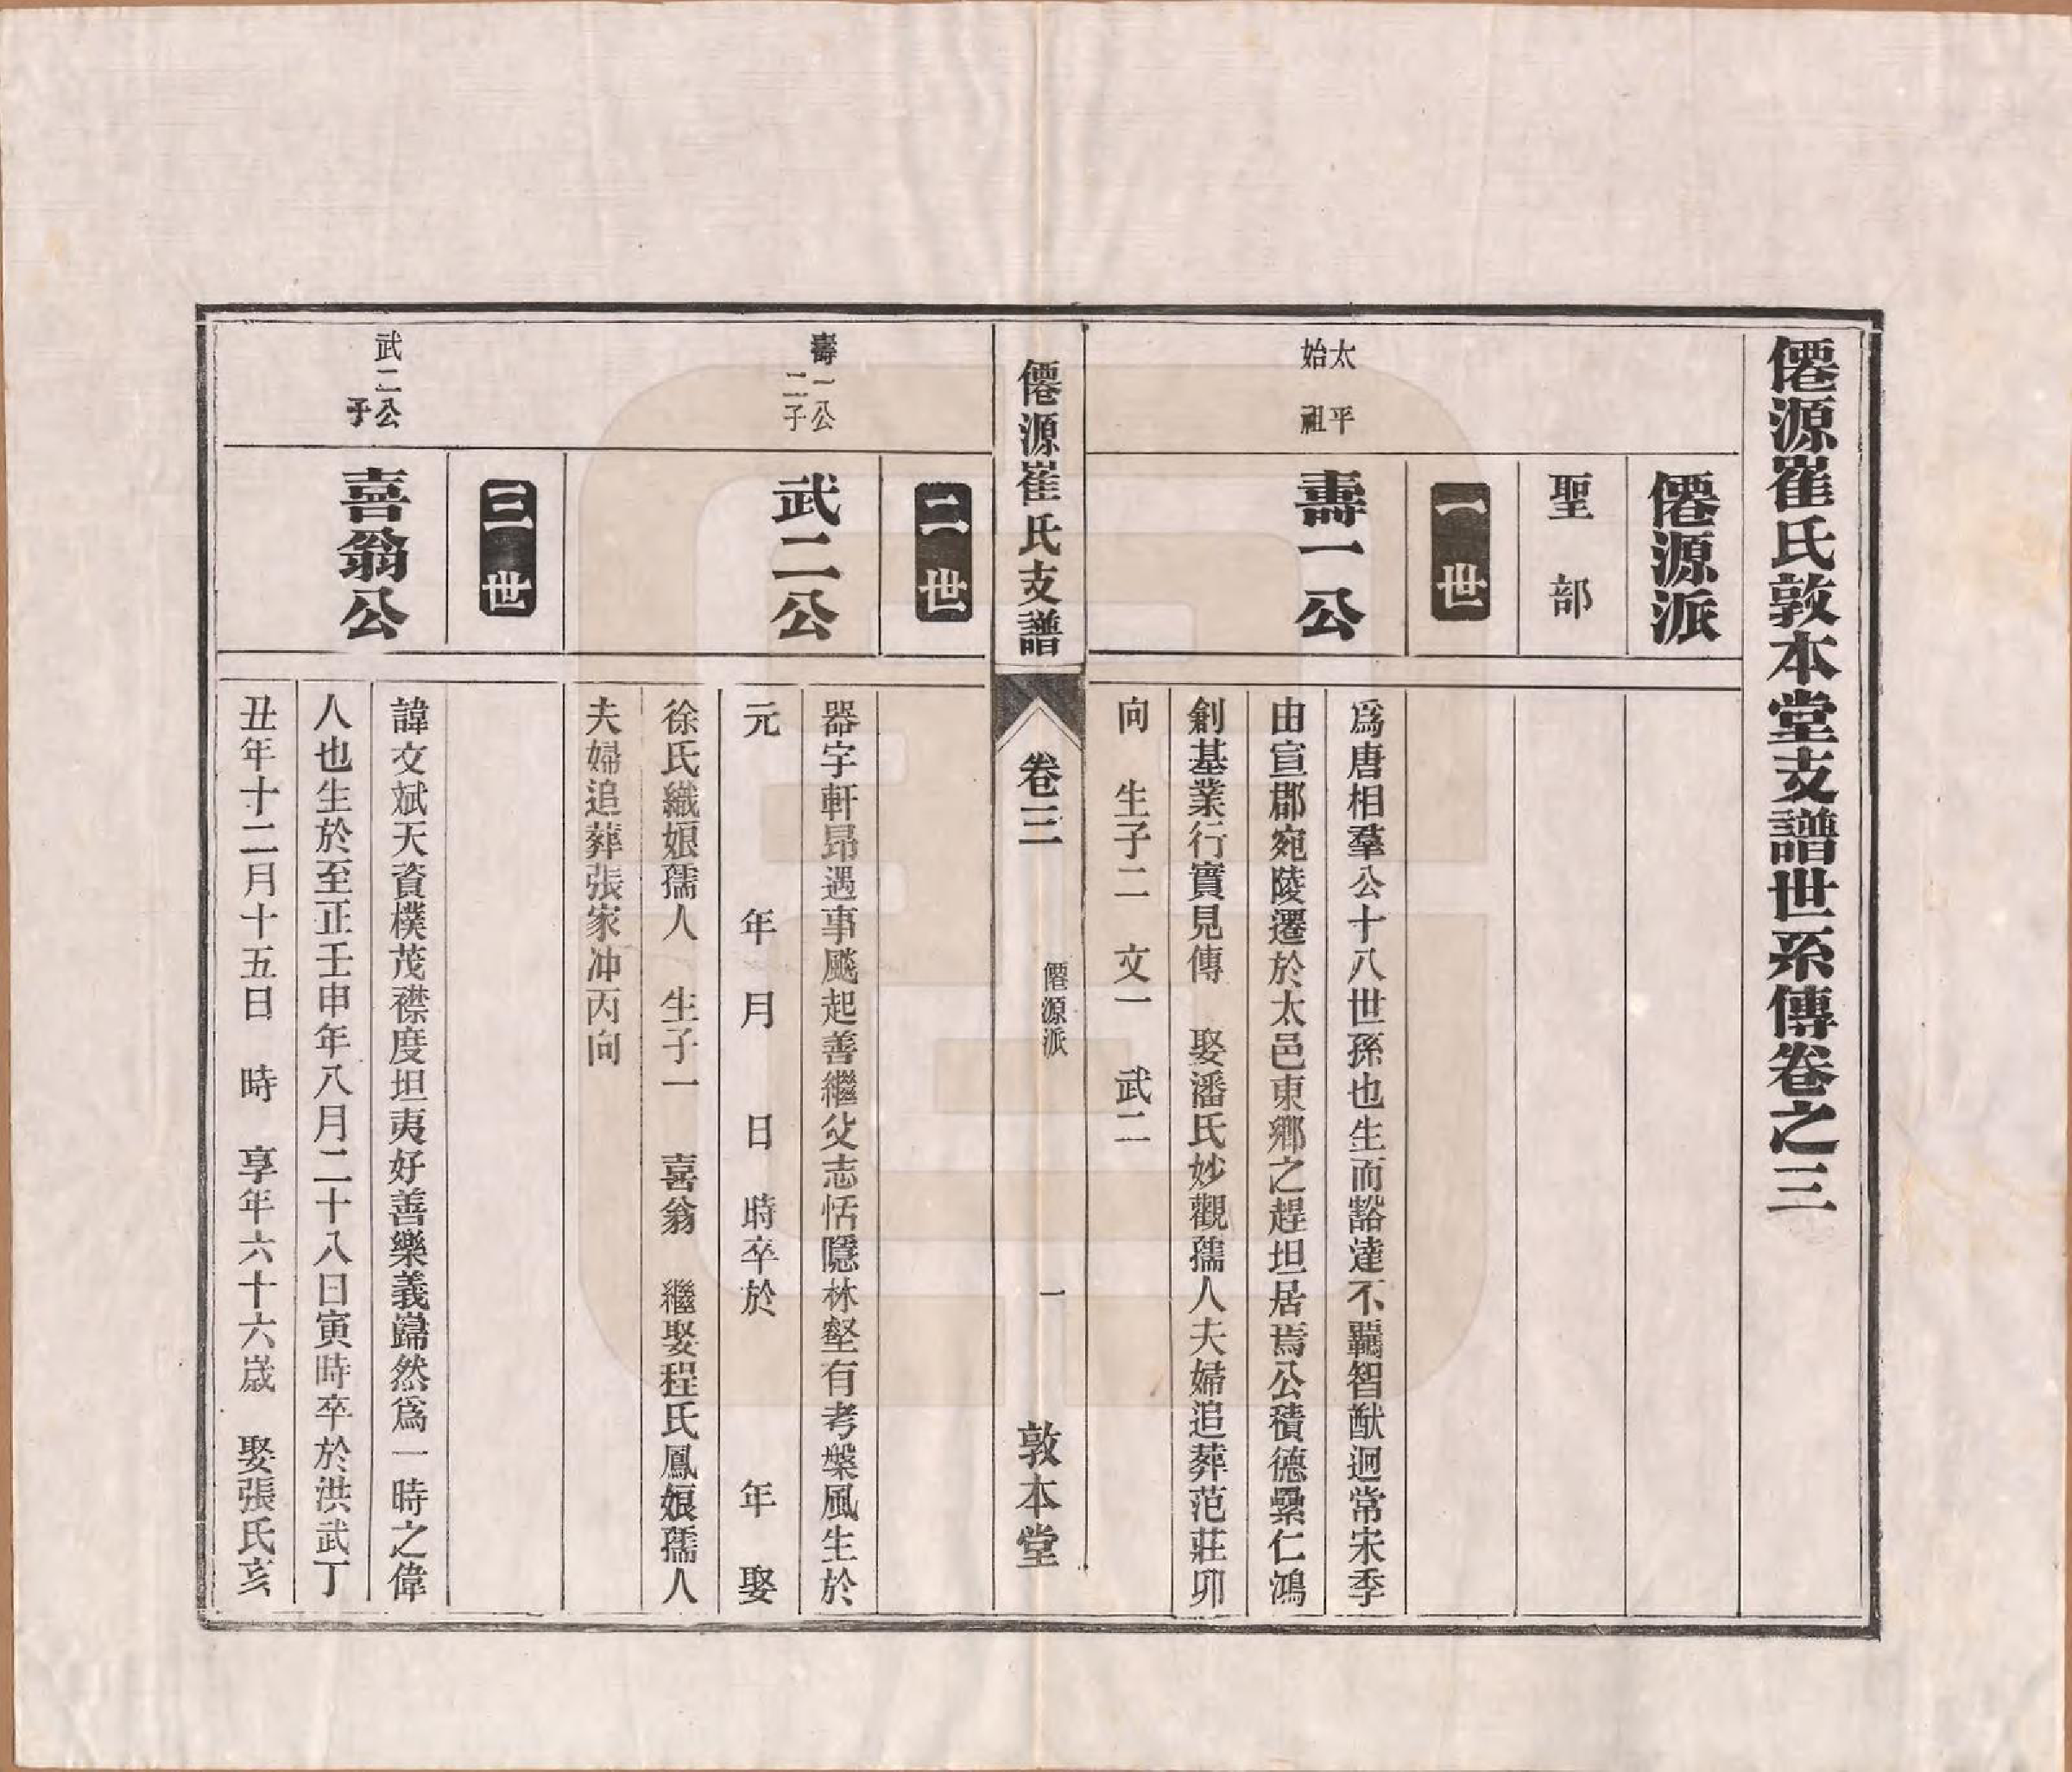 僊源崔氏敦本堂支譜世系傳卷之三
僊源派
聖部
一世
太平
始祖
壽一公
爲唐相羣公十八世孫也生而豁達不羈智猷迥常宋季
由宣郡宛陵遷於太邑東鄉之趕坦居焉公積德纍仁鴻
創基業行實見傳 娶潘氏妙觀孺人夫婦追葬范莊卯
向 生子二 文一 武二
僊源崔氏支譜
卷三
僊源派
一
敦本堂
二世
壽一公
二子
武二公
器宇軒昂遇事颷起善繼父志恬隱林壑有考槃風生於
元 年 月 日 時卒於 年 娶
徐氏織娘孺人 生子一 喜翁 繼娶程氏鳳娘孺人
夫婦追葬張家冲丙向
三世
武二公
子
喜翁公
諱文斌天資樸茂襟度坦夷好善樂義巋然爲一時之偉
人也生於至正壬申年八月二十八日寅時卒於洪武丁
丑年十二月十五日 時 享年六十六歲 娶張氏亥